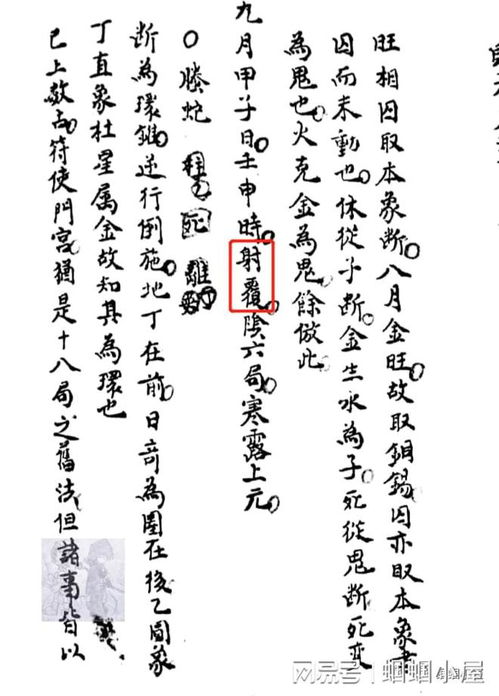 旺相囚取本象断八月金旺故取銅錫囚亦取本象
囚而未動也休從子断金生水為子死從鬼断死
為鬼也火克金為鬼餘倣此
九月甲子日壬申時射覆陰六局寒露上元
螣蛇 死 離
断為環錐逆行倒施地丁在前日奇為圓在後乙圓象
丁直象杜星属金故知其為環也
已上数占符使門宮猶是十八局之舊法但諸事皆以
网易号 | 蝈蝈小屋